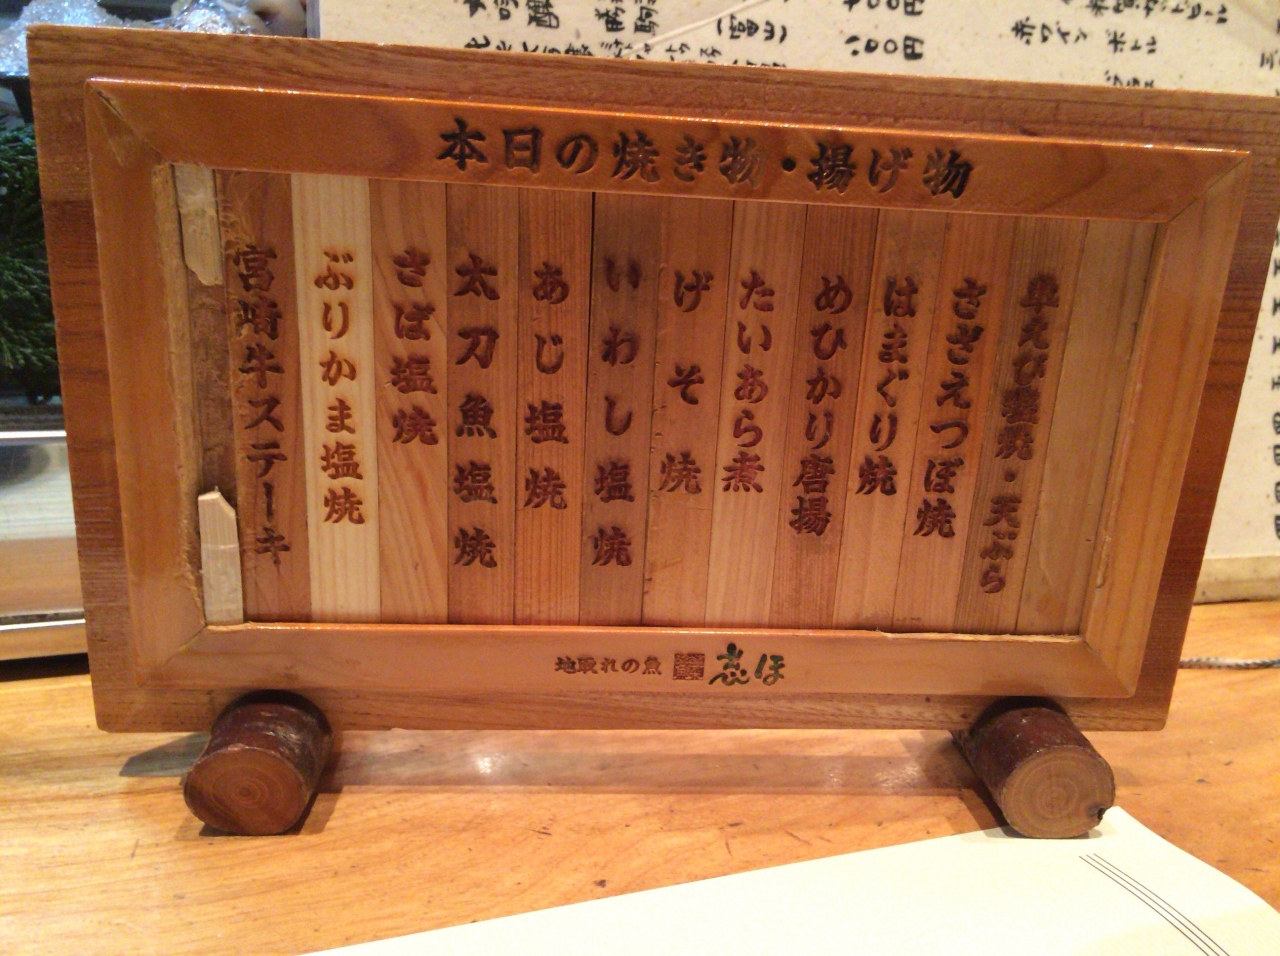 本日の焼き物・揚げ物
車えび塩焼・天ぷら
さざえつぼ焼
はまぐり焼
めひかり唐揚
たいあら煮
げそ焼
いわし塩焼
あじ塩焼
太刀魚塩焼
さば塩焼
ぶりかま塩焼
宮崎牛ステーキ
地取れの魚
志ほ
赤ワイン
ボトル